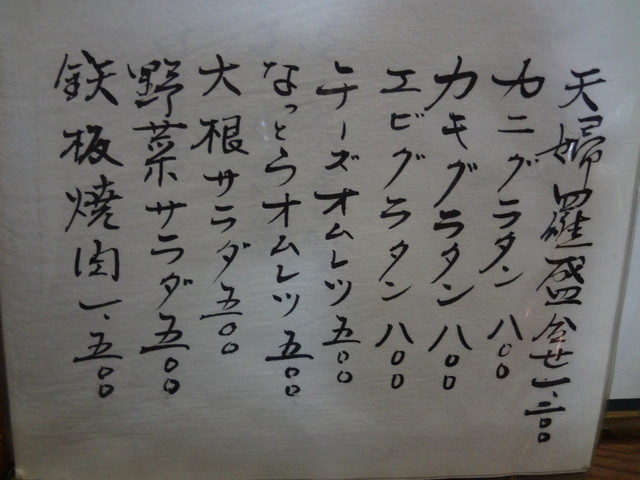 天婦羅盛合せ一、二〇〇
カニグラタン八〇〇
カキグラタン八〇〇
エビグラタン八〇〇
チーズオムレツ五〇〇
なっとうオムレツ五〇〇
大根サラダ五〇〇
野菜サラダ五〇〇
鉄板焼肉一、五〇〇